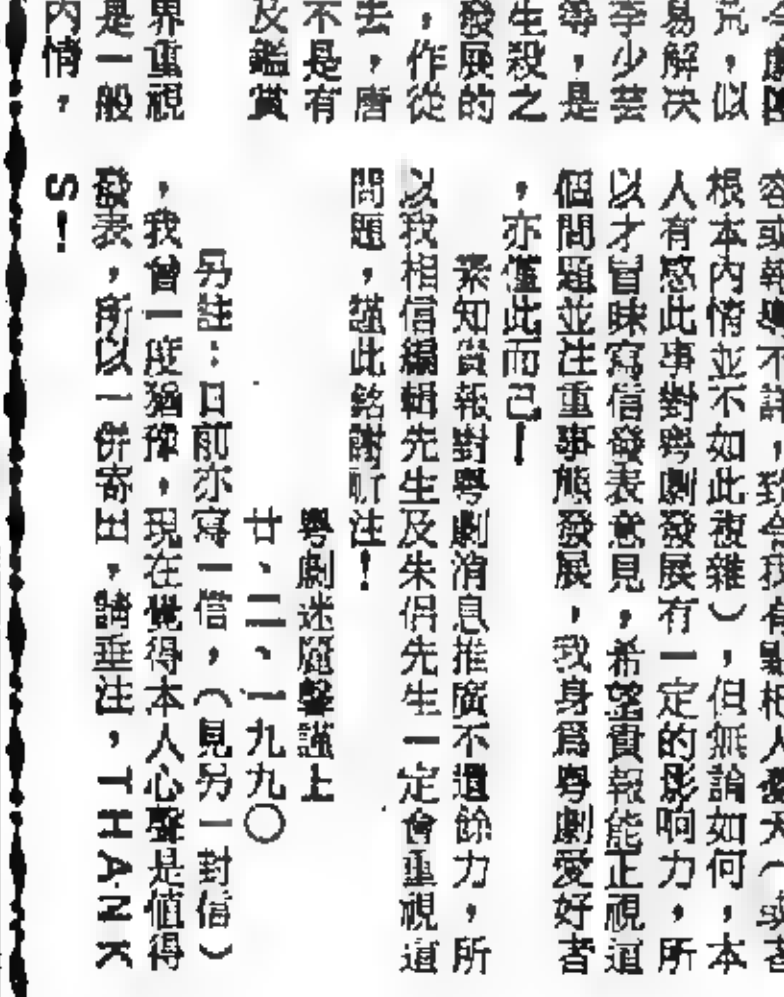 荒，似
易解决
李少芸
等，是
生殺之
發展的
，作從
去，唐
不是有
及鑑賞
界重視
是一般
內情，
根本內情並不如此複雜），但無論如何，本
人有感此事對粵劇發展有一定的影响力，所
以才冒昧寫信發表意見，希望貴報能正視這
個問題並注重事態發展，我身爲粵劇愛好者
，亦僅此而已！
素知貴報對粵劇消息推廣不遺餘力，所
以我相信編輯先生及朱侶先生一定會重視這
問題，謹此銘謝祈注！
粵劇迷 聲謹上
廿、二、一九九〇
另註：日前亦寫一信，（見另一封信）
，我曾一度猶豫，現在覺得本人心聲是值得
發表，所以一併寄出，請垂注，THANK
S！